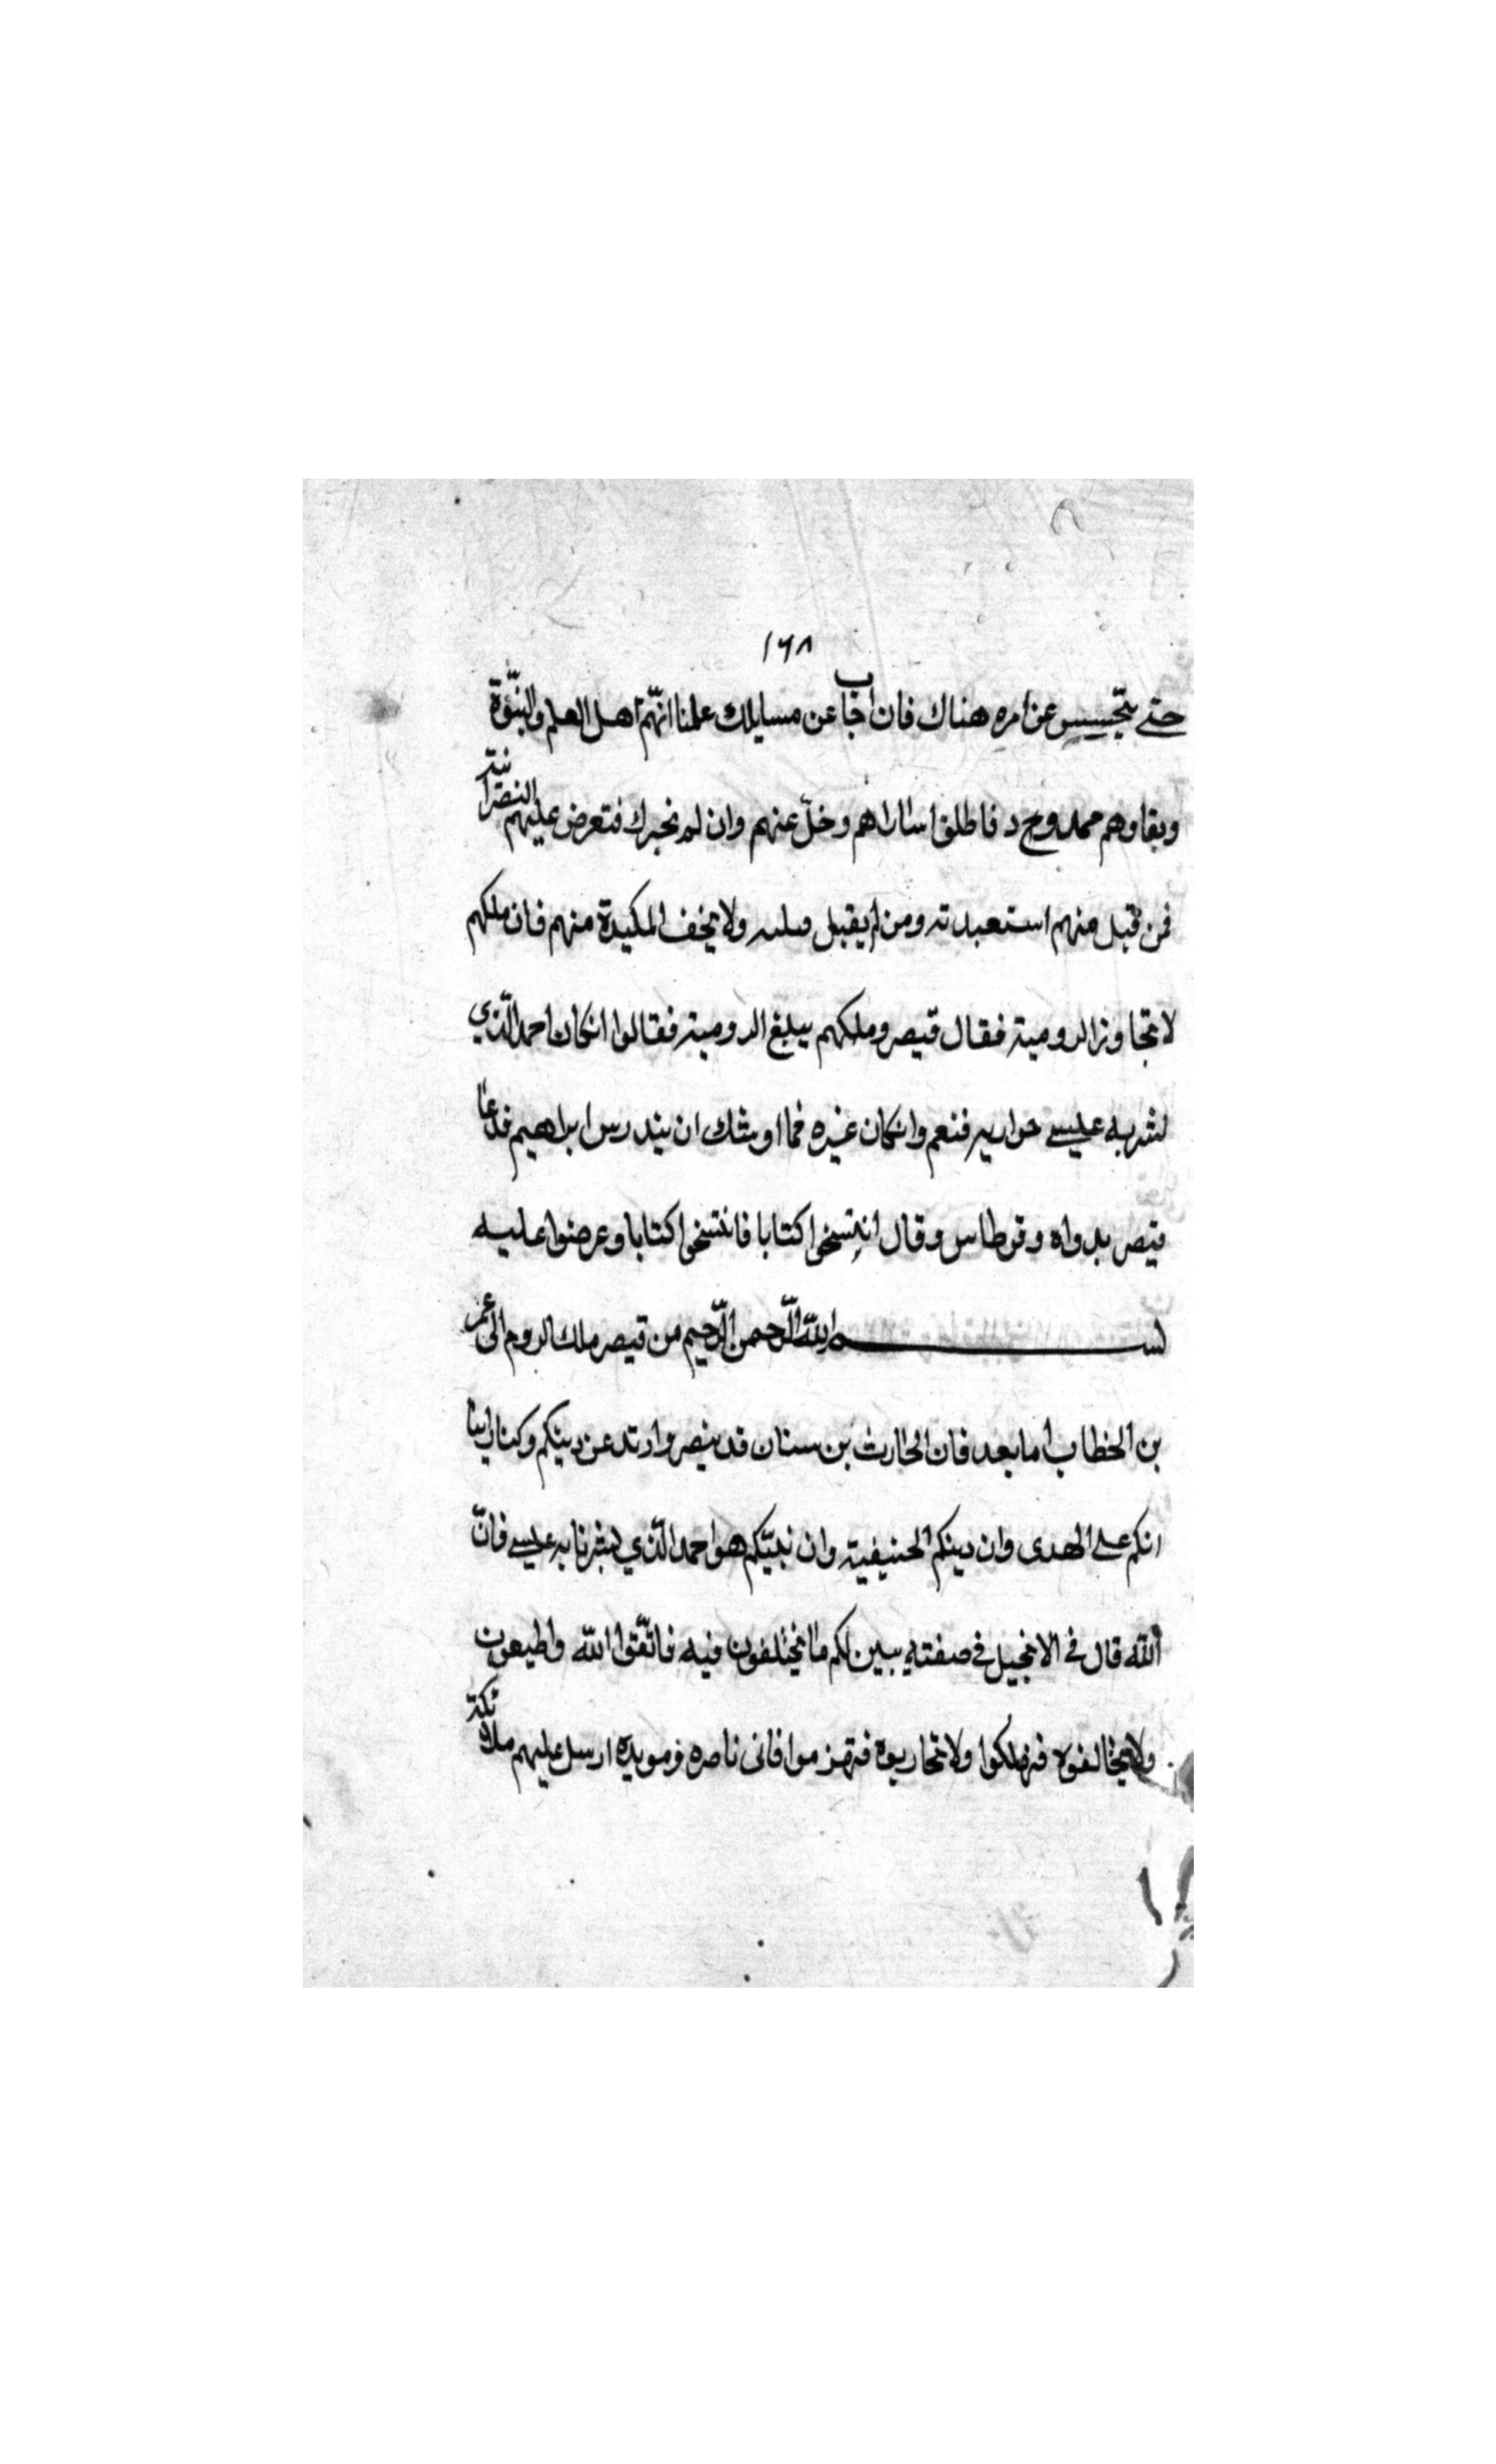 ١٦٨
حتى يتجسس عن امره هناك فان اجاب عن مسايلك علمنا انهم اهل العلم والنبّوة
وبقاوهم ممدوح د فاطلق اساراهم وخلّ عنهم وان لم نخبرك فتعرض عليهم النصرانية
فمن قبل منهم استعبدته ومن لم يقبل قتلته ولا يخف المكيدة منهم فان ملكهم
لا يتجاوز الرومية فقال قيصر وملكهم يبلغ الرومية فقالوا انكان احمد الّذي
بشر به عيسى حواريه فنعم وانكان غيره فما اوشك ان يندرس ابراهيم فدعا
قيصر بدواه وقرطاس وقال انتسخوا كتابا فانتسخوا كتابا وعرضوا عليه
بسم الله الرّحمن الرّحيم من قيصر ملك الروم الى عمر
بن الخطاب اما بعد فان الحارث بن سنان قد تنصر وارتد عن دينكم وكتابي اينا
انكم على الهدى وان دينكم الحنيفية وان نبيّكم هو احمد الّذي بشرنا به عيسى فانّ
الله قال في الانجيل في صفته يبين لكم ما تختلفون فيه فاتّقوا الله واطيعون
ولا تخالفوه فتهلكوا ولا تحاربوه فتهزموا فانى ناصره ومويده ارسل عليهم ملائكة